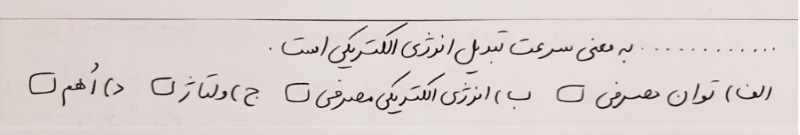 ............ به معنی سرعت تبدیل انرژی الکتریکی است .
الف) توان مصرفی □ ب) انرژی الکتریکی مصرفی □ ج) ولتاژ □ د) اُهم □